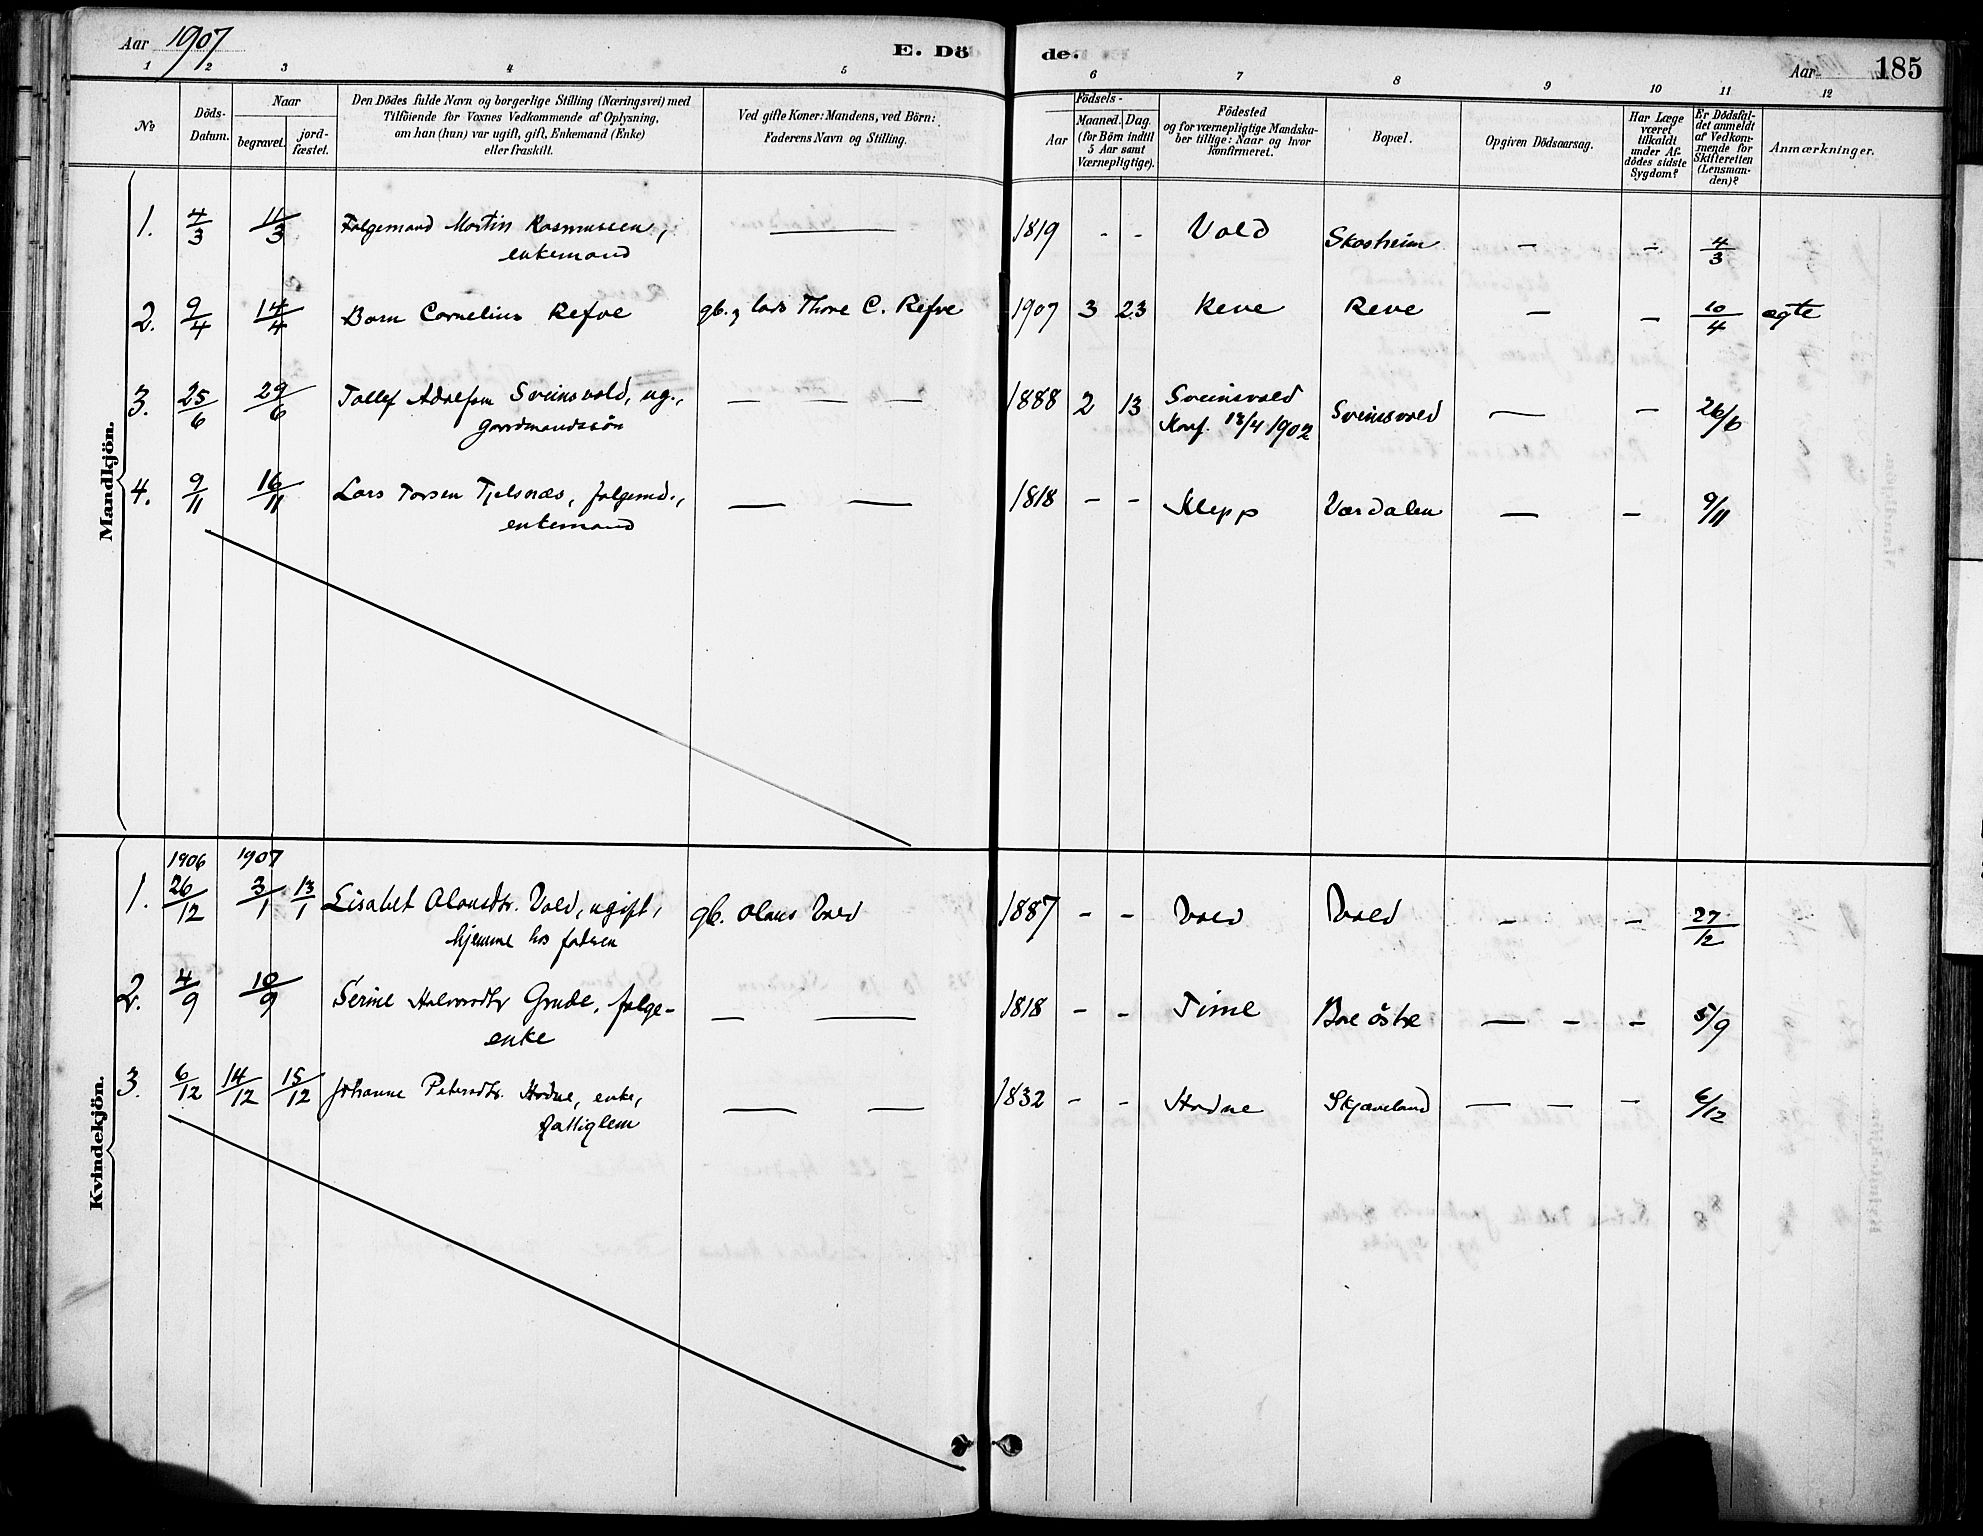 Aar 1907 E. Dö de. Aar 185
1 2 3 4 5 6 7 8 9 10 11 12
№
Döds-
Datum.
Naar
begravet.
jord-
fæstet.
Den Dödes fulde Navn og borgerlige Stilling (Næringsvei) med
Tilföiende for Voxnes Vedkommende af Oplysning,
om han (hun) var ugift, gift, Enkemand (Enke)
eller fraskilt.
Ved gifte Koner: Mandens, ved Börn:
Faderens Navn og Stilling.
Födsels-
Aar
Maaned. Dag.
(for Börn indtil
5 Aar samt
Værnepligtige).
Födested
og for værnepligtige Mandska-
ber tillige: Naar og hvor
konfirmeret.
Bopæl.
Opgiven Dödsaarsag.
Har Læge
været
tilkaldt
under Af-
dödes sidste
Sygdom?
Er Dödsfal-
det anmeldt
af Vedkom-
mende for
Skifteretten
(Lensman-
den)?
Anmærkninger.
Mandkjön.
1. 4/3 11/3 Folgemand Martin Rasmussen, — 1819 - - Vold Skasheim — — 4/3
enkemand
2. 9/4 14/4 Barn Cornelius Refve gb. & lods Thore C. Refve 1907 3 23 Reve Reve — — 10/4 ægte
3. 25/6 29/6 Tollef Adolfsen Sveinsvold, ug., — — — 1888 2 13 Sveinsvold Sveinsvold — — 26/6
gaardmandssön Konf. 13/4 1902
4. 9/11 16/11 Lars Torsen Tjelsnæs, folgemd., — — 1818 - - Klepp Vardalen — — 9/11
enkemand
Kvindekjön.
1906 1907
1. 26/12 3/1 13/1 Lisabet Olausdtr. Vold, ugift, gb. Olaus Vold 1887 - - Vold Vold - - 27/12
hjemme hos faderen
2. 4/9 10/9 Serine Halvorsdtr Grude, folge- — — 1818 - - Time Bore östre — - - 5/9
enke
3. 6/12 14/12 15/12 Johanne Petersdtr. Hodne, enke, — — 1832 - - Hodne Skjæveland — — - 6/12
fattiglem